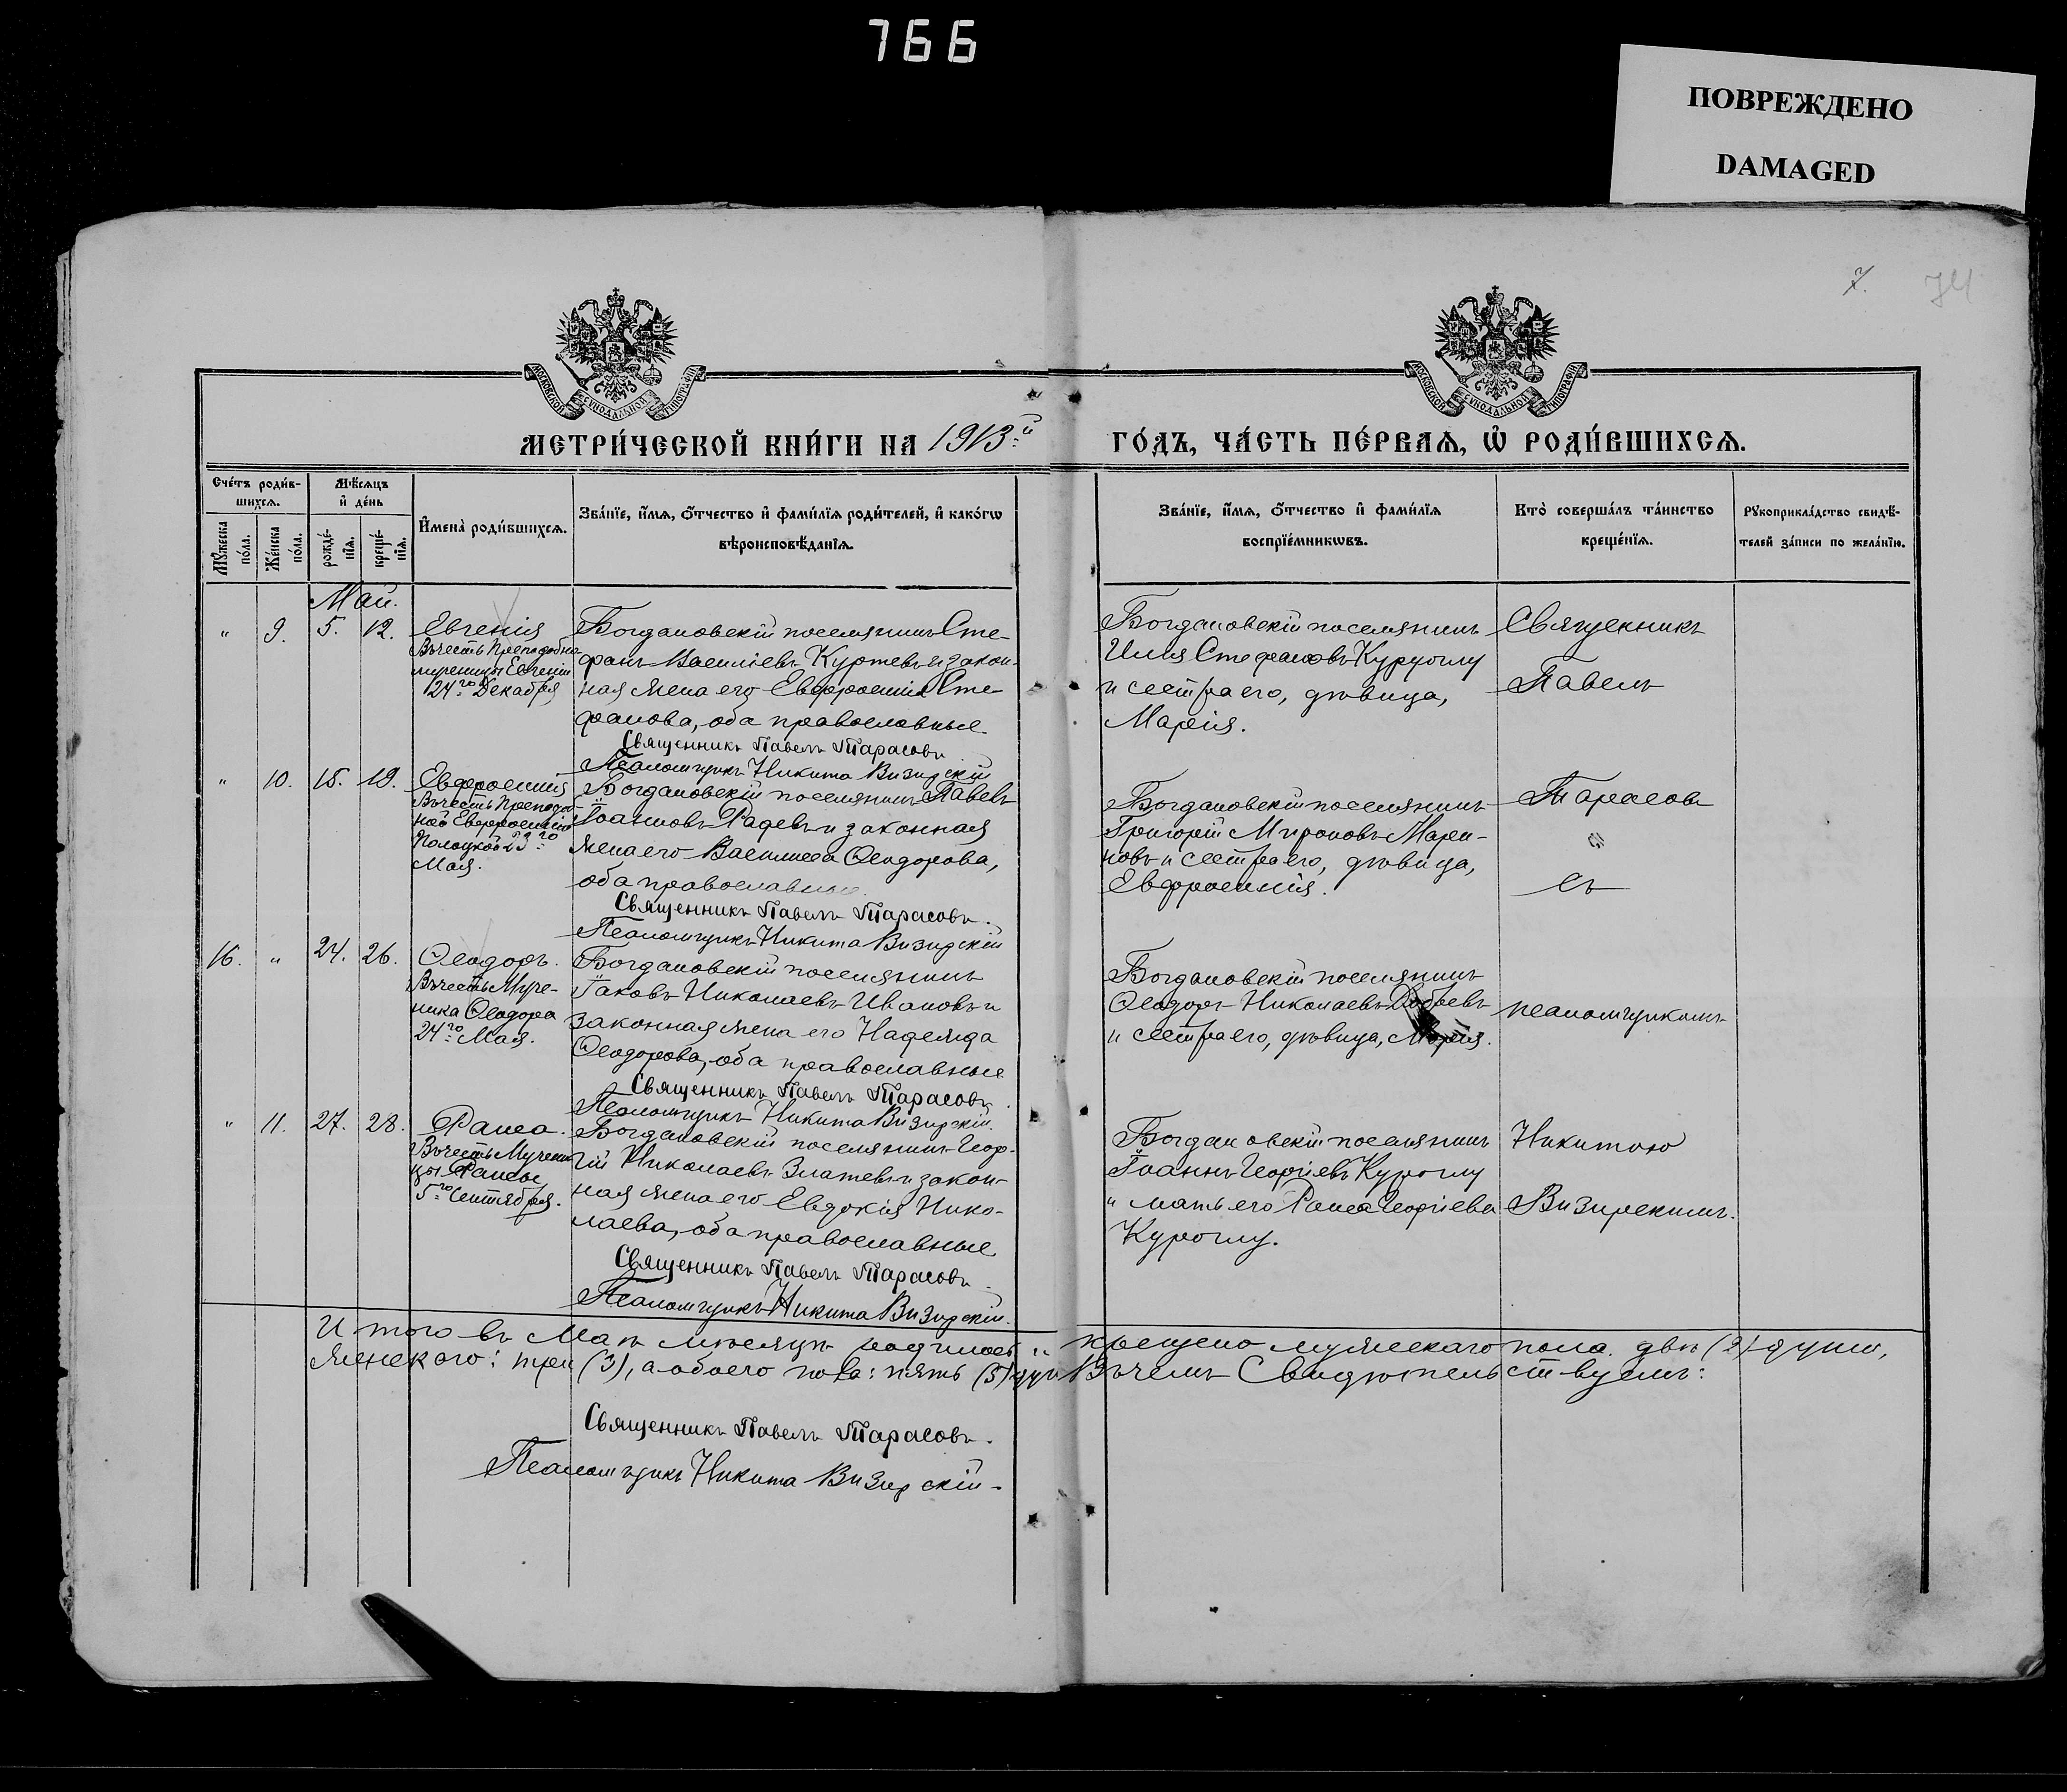 766
ПОВРЕЖДЕНО
DAMAGED
7. 74
МОСКОВСКОЙ СУНОДАЛЬНОЙ ТИПОГРАФІИ
МОСКОВСКОЙ СУНОДАЛЬНОЙ ТИПОГРАФІИ
МЕТРИ́ЧЕСКОЙ КНИ́ГИ НА 1913:й
ГО́ДЪ, ЧА́СТЬ ПЕ́РВАѦ, Ѡ҆ РОДИ́ВШИХСѦ.
Сче́тъ роди́в-
шихсѧ.
Мꙋ́жеска
по́ла.
Же́нска
по́ла.
Мѣ́сѧцъ
и҆ де́нь
рожде́-
нїѧ.
креще́-
нїѧ.
И҆мена̀ роди́вшихсѧ.
Зва́нїе, и҆́мѧ, ѻ҆́тчество и҆ фами́лїѧ роди́телей, и҆ како́гѡ
вѣроисповѣ́данїѧ.
Зва́нїе, и҆́мѧ, ѻ҆́тчество и҆ фами́лїѧ
воспрїе́мникѡвъ.
Кто̀ соверша́лъ та́инство
креще́нїѧ.
Рꙋкоприкла́дство свидѣ́-
телей за́писи по жела́нїю.
Май.
" 9. 5. 12.
Евгенія
Въ честь Преподобно
мученицы Евгеніи
24:го Декабря
Богдановскій поселянинъ Сте-
фанъ Василіевъ Куртевъ и закон-
ная жена его Евфросинія Сте-
фанова, оба православные.
Священникъ Павелъ Тарасовъ
Псаломщикъ Никита Визирскій
Богдановскій поселянинъ
Илія Стефановъ Куруоглу
и сестра его, дѣвица,
Марія.
Священникъ
Павелъ
" 10. 15. 19.
Евфросинія
Въ честь Преподоб-
ной Евфросиніи
Полоцкой 23:го
Мая.
Богдановскій поселянинъ Павелъ
Іоанновъ Радевъ и законная
жена его Василиса Ѳеодорова,
оба православные.
Священникъ Павелъ Тарасовъ.
Псаломщикъ Никита Визирскій
Богдановскій поселянинъ
Григорій Мироновъ Марен-
новъ и сестра его, дѣвица,
Евфросинія.
Тарасовъ
съ
16. " 24. 26.
Ѳеодоръ.
Въ честь Муче-
ника Ѳеодора
24:го Мая.
Богдановскій поселянинъ
Іаковъ Николаевъ Ивановъ и
законная жена его Надежда
Ѳеодорова, оба православные
Священникъ Павелъ Тарасовъ.
Псаломщикъ Никита Визирскій.
Богдановскій поселянинъ
Ѳеодоръ Николаевъ
и сестра его, дѣвица, Марія.
псаломщикомъ
" 11. 27. 28.
Раиса.
Въ честь Мучени-
цы Раисы
5:го Сентября.
Богдановскій поселянинъ Геор-
гій Николаевъ Златевъ и закон-
ная жена его Евдокія Нико-
лаева, оба православные
Священникъ Павелъ Тарасовъ.
Псаломщикъ Никита Визирскій.
Богдановскій поселянинъ
Іоаннъ Георгіевъ Куроглу
и мать его Раиса Георгіева
Куроглу.
Никитою
Визирскимъ.
Итого въ Маѣ мѣсяцѣ родилось и крещено мужескаго пола: двѣ (2) души,
женскаго: три (3), а обоего пола: пять (5) душъ Въ чемъ Свидѣтельствуемъ:
Священникъ Павелъ Тарасовъ.
Псаломщикъ Никита Визирскій.